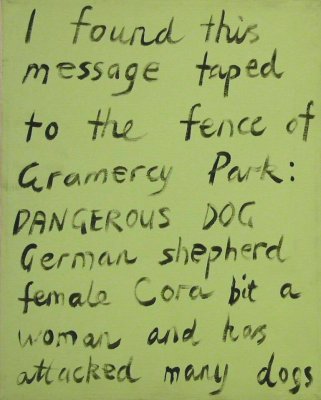 I found this
message taped
to the fence of
Gramercy Park:
DANGEROUS DOG
German shepherd
female Cora bit a
woman and has
attacked many dogs